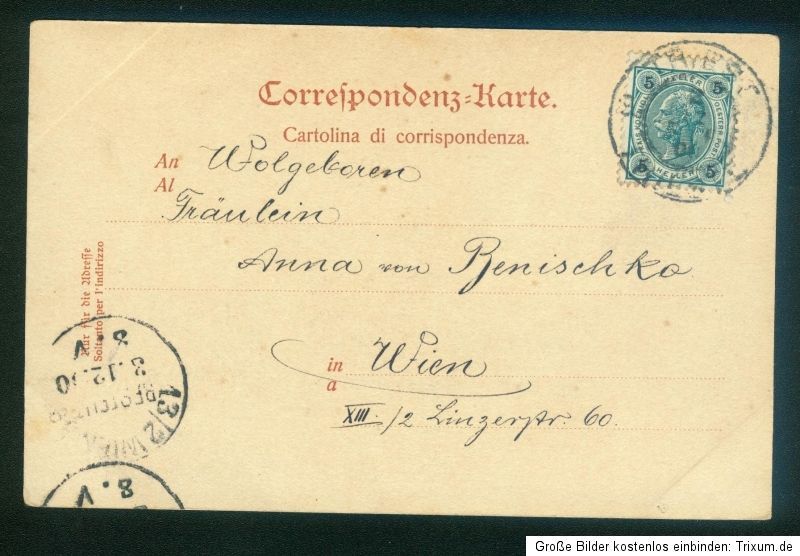 Correspondenz-Karte.
Cartolina di corrispondenza.
An
Al
Wolgeboren
Fräulein
Anna von Benischko
in
a
Wien
XIII./2 Linzerstr. 60.
Nur für die Adresse
Soltanto per l'indirizzo
5 HELLER 5
5 HELLER 5
8. V
3.12.00
BESTELLT
13/2 WIEN
8. V
Große Bilder kostenlos einbinden: Trixum.de